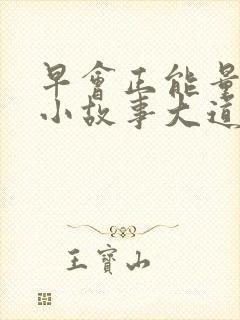 早會正能量
小故事大道
王寶山